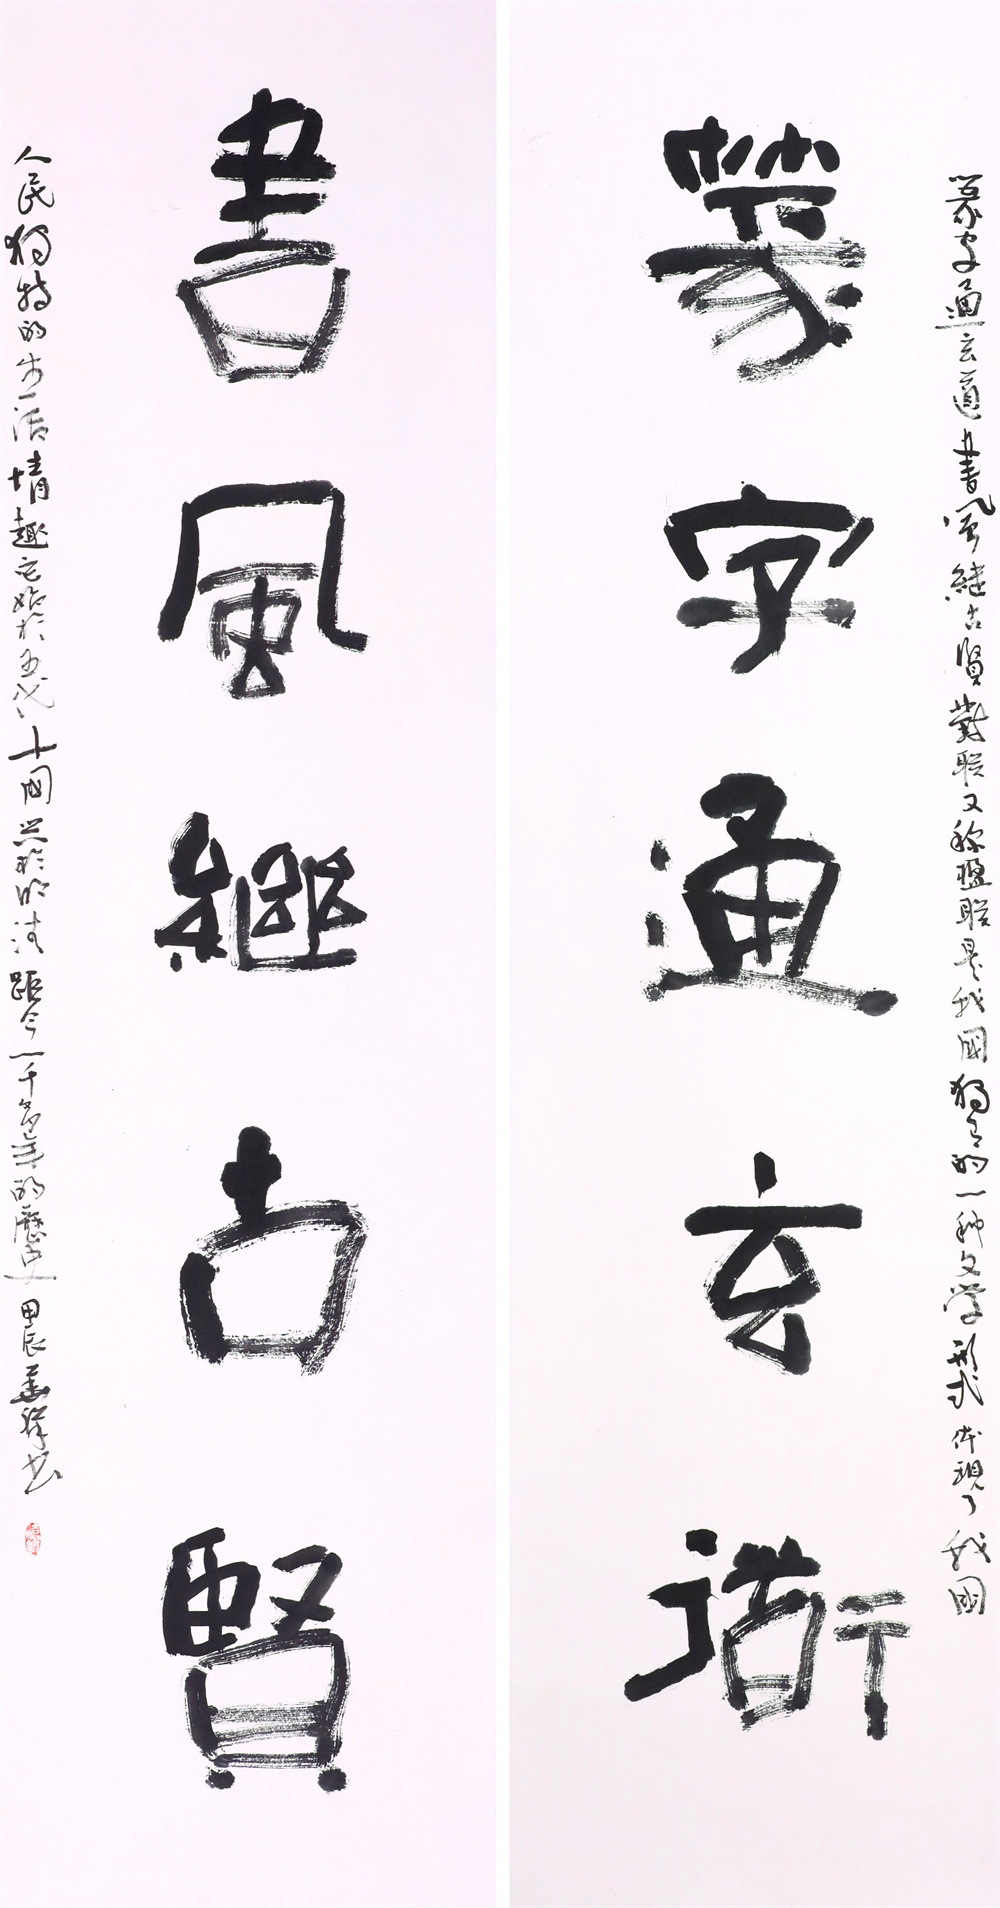 篆字通玄道書風繼古賢對联又称楹联是我國獨有的一种文学形式体現了我國
篆字通玄衟
書風繼古賢
人民獨特的生活情趣它始於五代十国興於明清距今一千多年的歷史甲辰